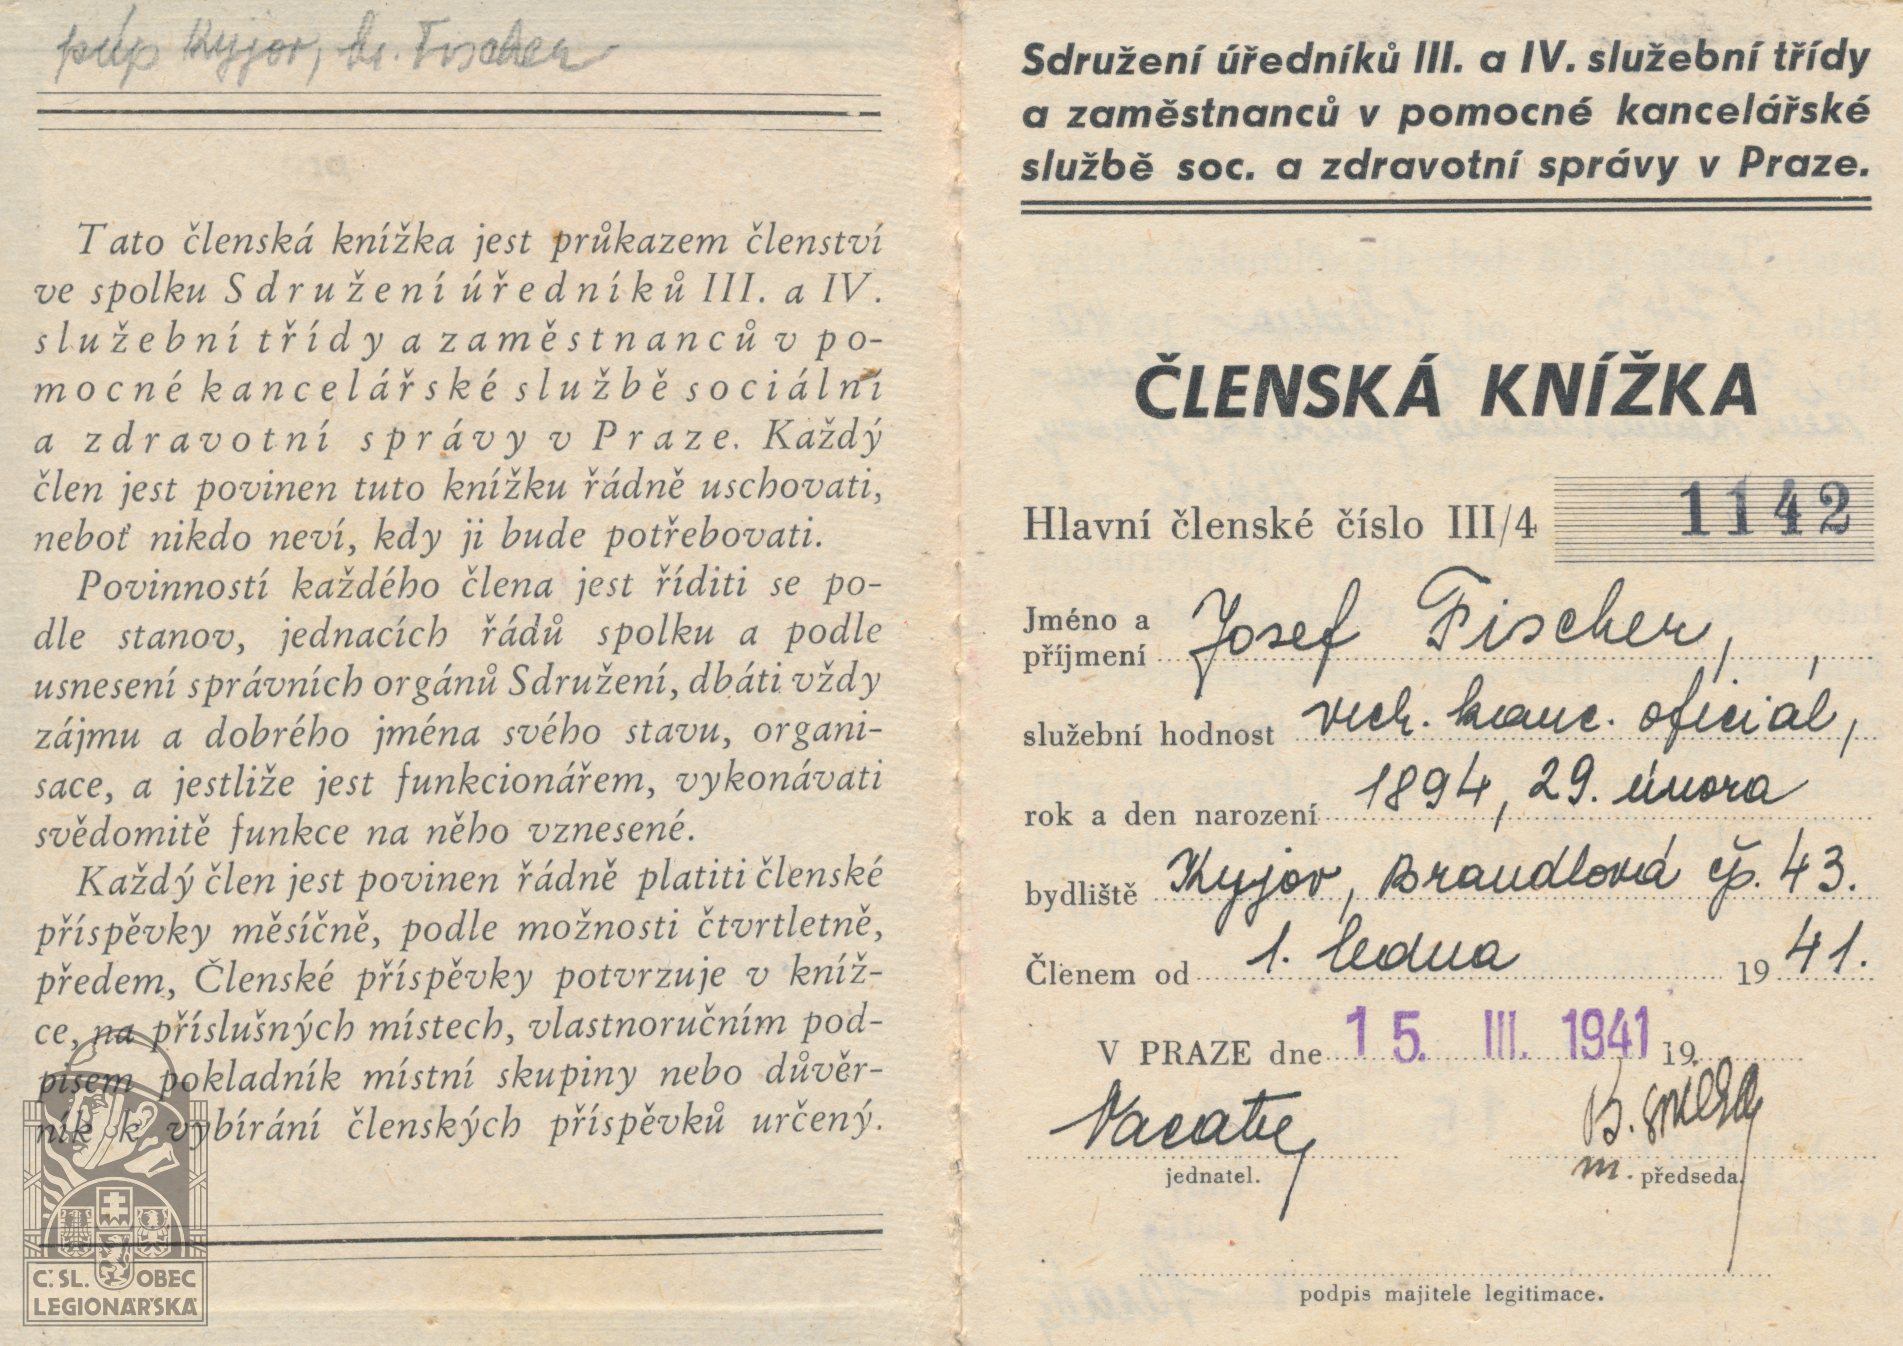 púp Kyjov, br. Fischer
Tato členská knížka jest průkazem členství
ve spolku Sdružení úředníků III. a IV.
služební třídy a zaměstnanců v po-
mocné kancelářské službě sociální
a zdravotní správy v Praze. Každý
člen jest povinen tuto knížku řádně uschovati,
neboť nikdo neví, kdy ji bude potřebovati.
Povinností každého člena jest říditi se po-
dle stanov, jednacích řádů spolku a podle
usnesení správních orgánů Sdružení, dbáti vždy
zájmu a dobrého jména svého stavu, organi-
sace, a jestliže jest funkcionářem, vykonávati
svědomitě funkce na něho vznesené.
Každý člen jest povinen řádně platiti členské
příspěvky měsíčně, podle možnosti čtvrtletně,
předem, Členské příspěvky potvrzuje v kníž-
ce, na příslušných místech, vlastnoručním pod-
pisem pokladník místní skupiny nebo důvěr-
ník k vybírání členských příspěvků určený.
Č. SL. OBEC
LEGIONÁŘSKÁ
Sdružení úředníků III. a IV. služební třídy
a zaměstnanců v pomocné kancelářské
službě soc. a zdravotní správy v Praze.
ČLENSKÁ KNÍŽKA
Hlavní členské číslo III/4 1142
Jméno a
příjmení Josef Fischer,
služební hodnost vrch. kanc. oficiál,
rok a den narození 1894, 29. února
bydliště Kyjov, Brandlová čp. 43.
Členem od 1. ledna 1941.
V PRAZE dne 15. III. 1941 19
jednatel. m. předseda.
podpis majitele legitimace.